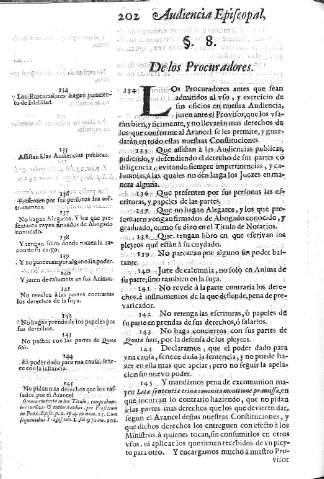 202 Audiencia Episcopal,
§. 8.
De los Procuradores.
234
y Los Procuradores hagan juramen-
to de fidelidad.
235
Assistan à las Audiencias publicas.
236
237
No hagan Alegatos, y los que pre-
238
239
Y no parezcan por algun sin poder.
240
Y juren de calumnia en su Anima.
241
No revelen à la parte contraria
los secretos de la suya.
242
Y no hagan prenda de los papeles por
sus derechos.
243
No pacten con las partes de Quota
litis.
244
El poder dado para una causa, fene-
ce con la instancia.
245
No pidan mas derechos que los tas-
sados por el Arancel
234. LOs Procuradores antes que sean
admitidos al uso, y exercicio de
sus oficios en nuestra Audiencia,
juren ante el Provisor, que los usa-
ràn bien, y fielmente, y no llevaràn mas derechos de
los que conforme al Arancel se les permite, y guar-
daràn en todo estas nuestras Constituciones.
235. Que assistan à las Audiencias publicas,
pidiendo, y defendiendo el derecho de sus partes cõ
diligencia, evitando siempre impertinencias, y ca-
lumnias, à las quales no den lugar los Juezes en ma-
nera alguna.
236. Que presenten por sus personas las es-
crituras, y papeles de las partes.
237. Que no hagan Alegatos, y los que pre-
sentaren vengan firmados de Abogado conocido, y
graduado, como se dixo en el Titulo de Notarios.
238. Que tengan libro en que escrivan los
pleytos que estàn à su cuydado.
239. No parezcan por alguno sin poder bas-
tante.
240. Jure de calumnia, no solo en Anima de
su parte, sino tambien en la suya.
241. No revele à la parte contraria los dere-
chos, è instrumentos de la que defiende, pena de pre-
varicador.
242. No retenga las escrituras, ò papeles de
su parte en prendas de sus derechos, ò salarios.
243. No haga conciertos con sus partes de
Quota litis, por la defensa de los pleytos.
244. Declaramos, que el poder dado para
una causa, fenece dada la sentencia, y no puede ha-
zer en ella mas que apelar; pero no seguir la apela-
cion sin nuevo poder.
245. Y mandamos pena de excomunion ma-
yor Latæ sententiæ trina canonica monitione præmissa, en
que incurran lo contrario haziendo, que no pidan
à las partes mas derechos que los que devieren dar,
segun el Arancel destas nuestras Constituciones, y
que dichos derechos los entreguen con efecto à los
Ministros à quienes tocan, sin consumirlos en otros
usos, ni aplicar los que tienen recebidos de un pley-
to para otro. Y encargamos mucho à nuestro Pro-
visor